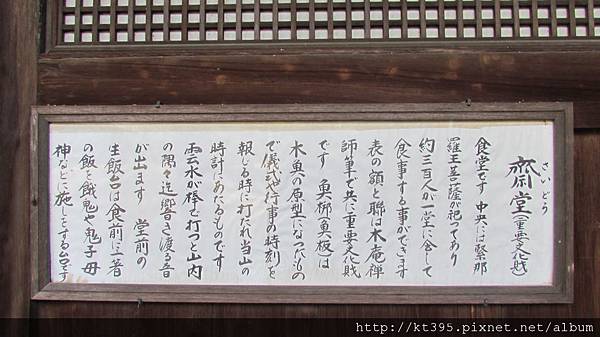 さいどう
齋堂(重要文化財)
食堂です 中央には緊那
羅王菩薩が祀つてあり
約三百人が一堂に会して
食事する事ができます
表の額と聯は木庵禅
師筆で共に重要文化財
です 魚梆(魚板)は
木魚の原型になったもの
で儀式や行事の時刻を
報じる時に打たれ当山の
時計にあたるものです
雲水が棒で打つと山内
の隅々迄響き渡る音
が出ます 堂前の
生飯台は食前に一著
の飯を餓鬼や鬼子母
神などに施しをする台です
http://kt395.pixnet.net/album